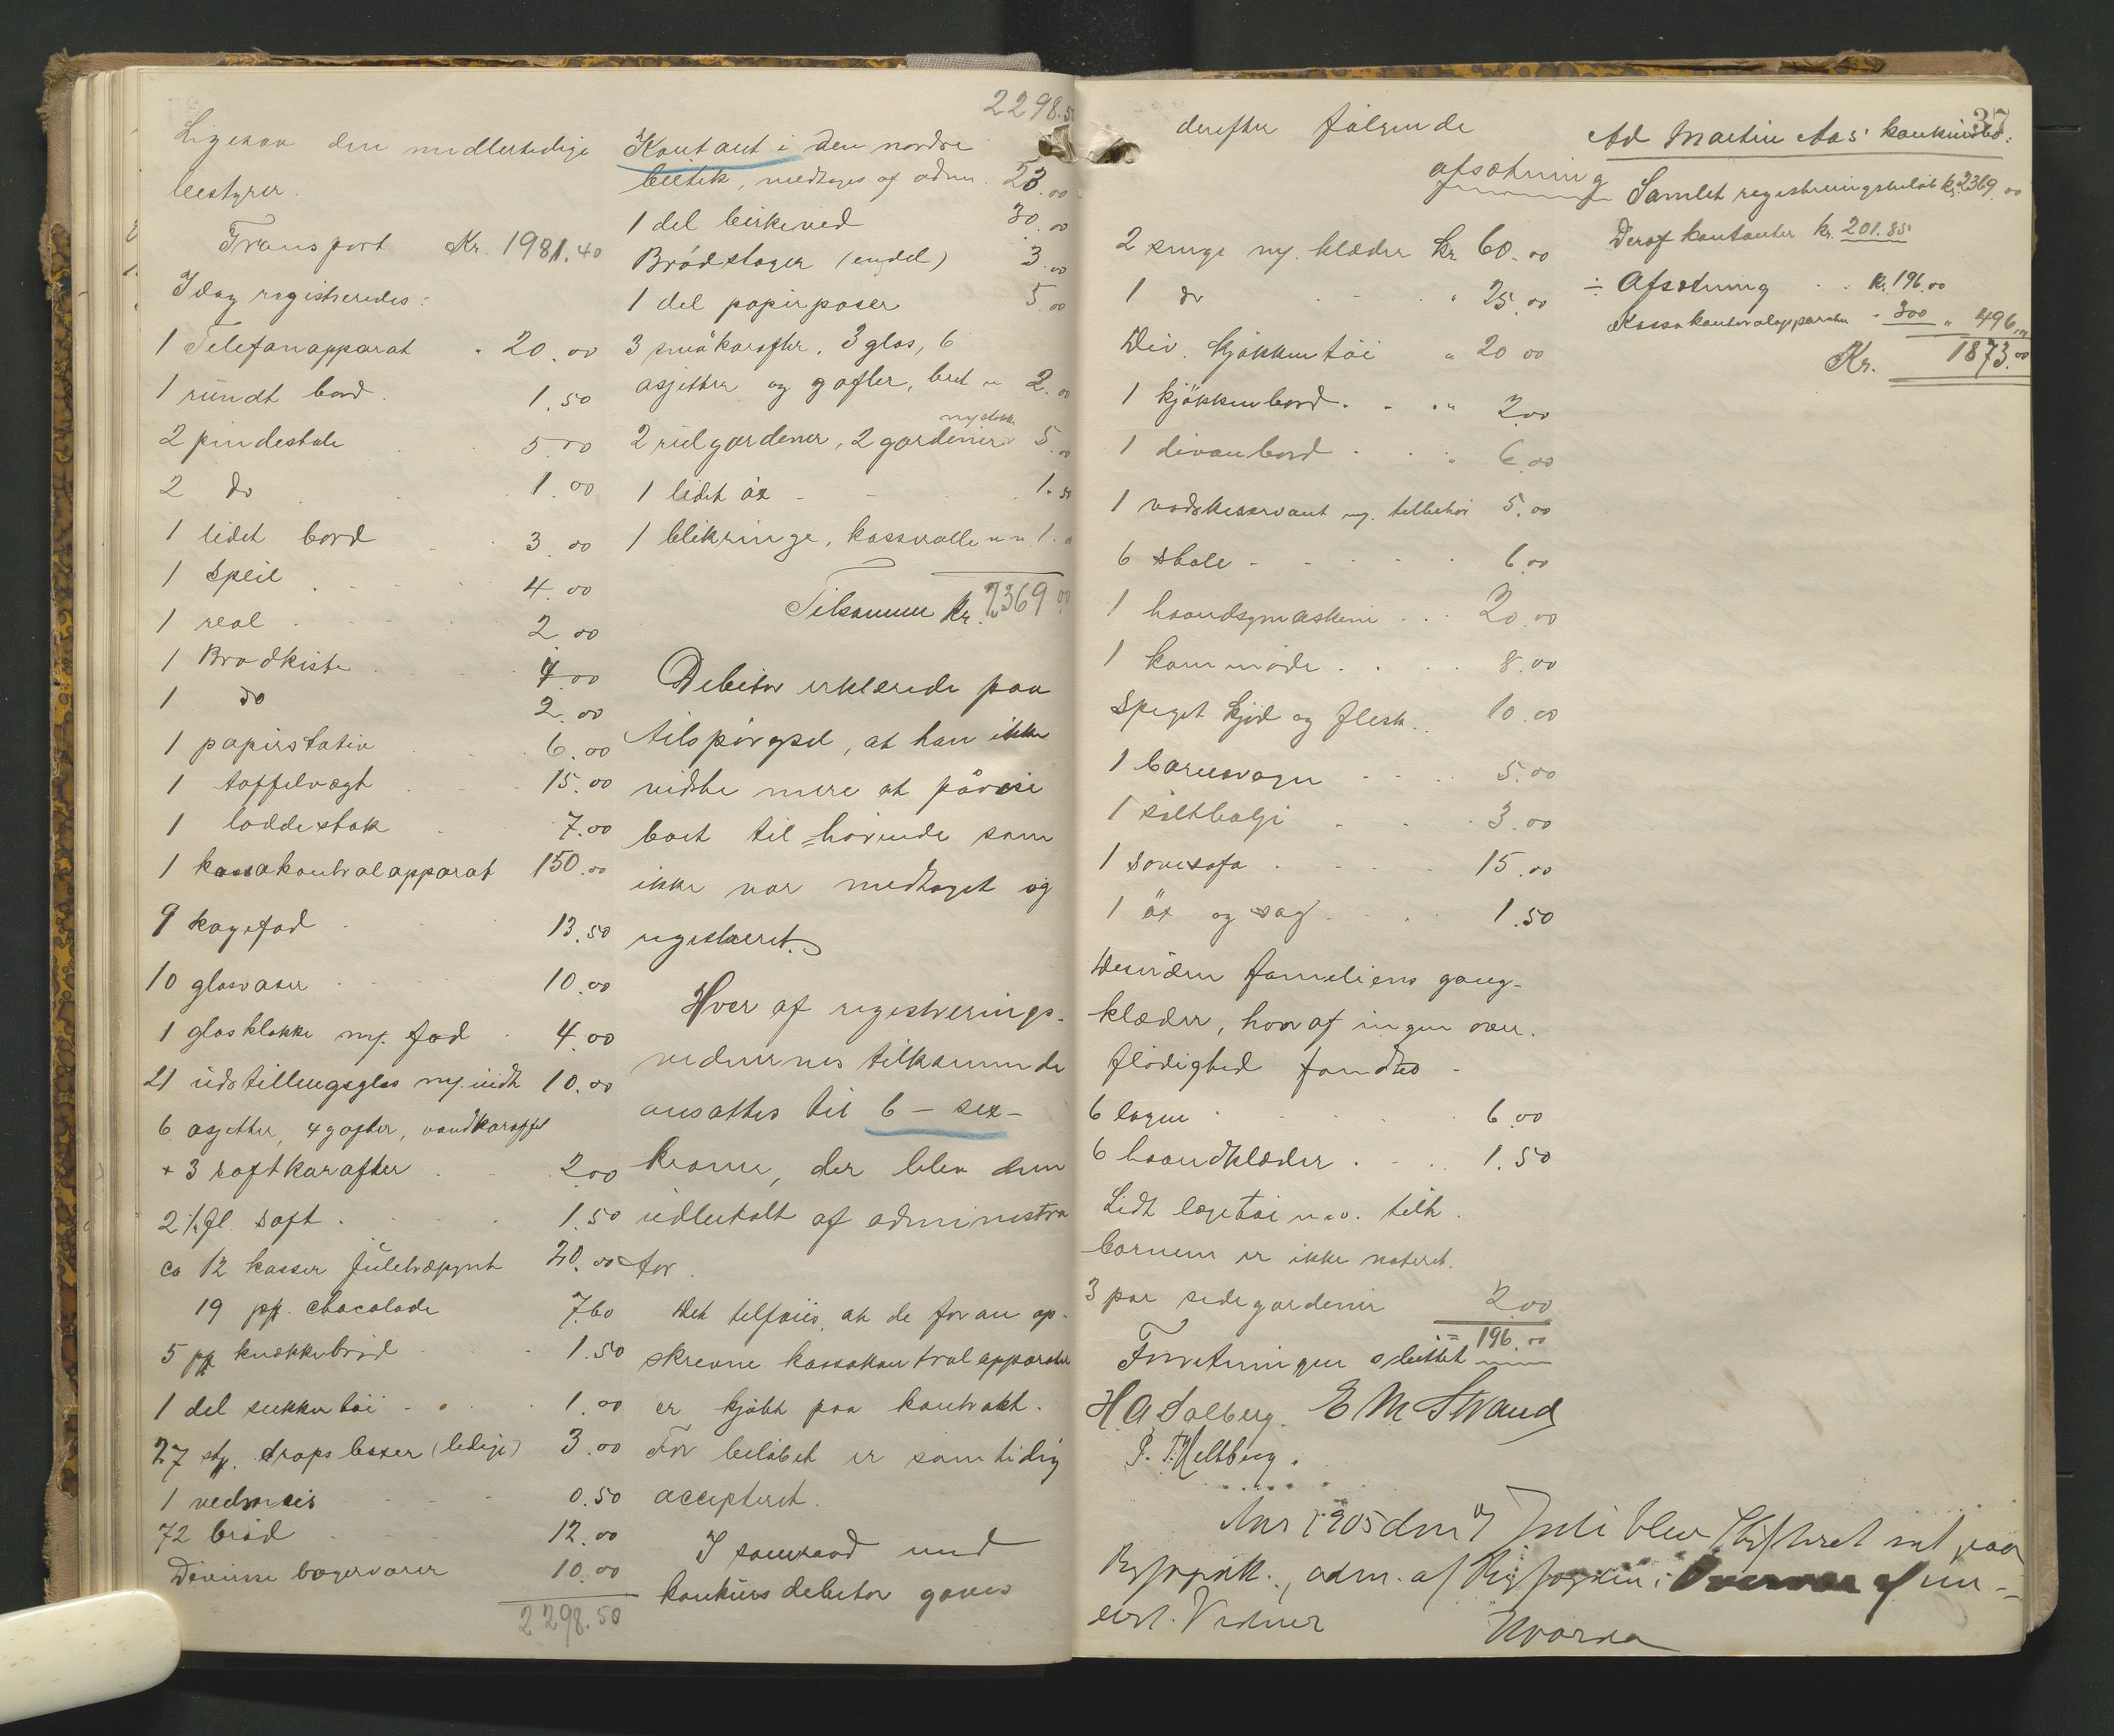 Ligesaa den midlertidige
bestyrer.
Transport Kr. 1981.40
Idag registreredes:
1 Telefonapparat " 20.00
1 rundt bord 1.50
2 pindestole 5.00
2 do 1.00
1 lidet bord 3.00
1 speil 4.00
1 reol 2.00
1 Brødkiste 4.00
1 do 2.00
1 papirstativ 6.00
1 taffelvægt 15.00
1 loddestok 7.00
1 kassakontrolapparat 150.00
9 kagefad 13.50
10 glasvaser 10.00
1 glasklokke m/. fad 4.00
21 udstillingsglas m/. indh 10.00
6 asjetter, 4 gafler, vandkaraffel
+ 3 saftkarafler 2.00
2 1/1 fl. saft 1.50
ca 12 kasser juletræpynt 20.00
19 pk. chocolade 7.60
5 pk knækkebrød 1.50
1 del sukkertøi 1.00
27 stk. dropsboxer (ledige) 3.00
1 0.50
72 brød 12.00
Diverse bagervarer 10.00
2298.50
2298.5
Kontant i den nordre
butik, medtages af adm. 23.00
1 del birkeved 30.00
Brødstager (endel) 3.00
1 del papirposer 5.00
3 småkarafler, 3 glas, 6
asjetter og gafler, bret m 2.00
2 rulgardener, 2 gardener 5.00
1 lidet øx 1.50
1 blikringe, kasserolle m m. 1.
Tilsammen kr. 2369.00
Debitor erklærede paa
tilspørgsel, at han ikke
vidste mere at påvise
boet til=hørende som
ikke var medtaget og
registreret.
Hver af registrerings-
vidnernes tilkommende
ansattes til 6 - sex -
kroner, der blev dem
udbetalt af administra
tor.
Det tilføies, at de foran op-
skrevne kassakontrolapparater
er kjøbt paa kontrakt.
For beløbet er samtidig
accepteret.
I samraad med
konkursdebitor gaves
37
derefter følgende
afsætning
2 senge m/. klæder kr 60.00
1 do " 25.00
Div. kjøkkentøi " 20.00
1 kjøkkenbord " 2.00
1 divanbord " 6.00
1 vadskeservant m/. tilbehør 5.00
6 stole 6.00
1 haandsymaskine 20.00
1 kommode 8.00
Speget kjød og flesk 10.00
1 barnevogn 5.00
1 saltbalje 3.00
1 sovesofa 15.00
1 øx og sag 1.50
Desuden familiens gang-
klæder, hvoraf ingen over-
flødighed fandtes -
6 lagen 6.00
6 haandklæder 1.50
Lidt legetøi m. v. tilh.
barnene er ikke noteret.
3 par sidegardener 2.00
= 196.00
Forretningen sluttet
H A Solberg. E M Strand
P. T. Heltberg.
Aar 1905 den 7 Juli blev Skifteret sat paa
adm. af i Overvær af un-
dert. Vidner Hvorda
Ad Martin Aas' konkursbo:
Samlet registreringsbeløb kr. 2369.00
Deraf kontanter kr. 201.85
÷ Afsætning kr. 196.00
Kassakontrolapparater " 300 " 496.00
Kr. 1873.00